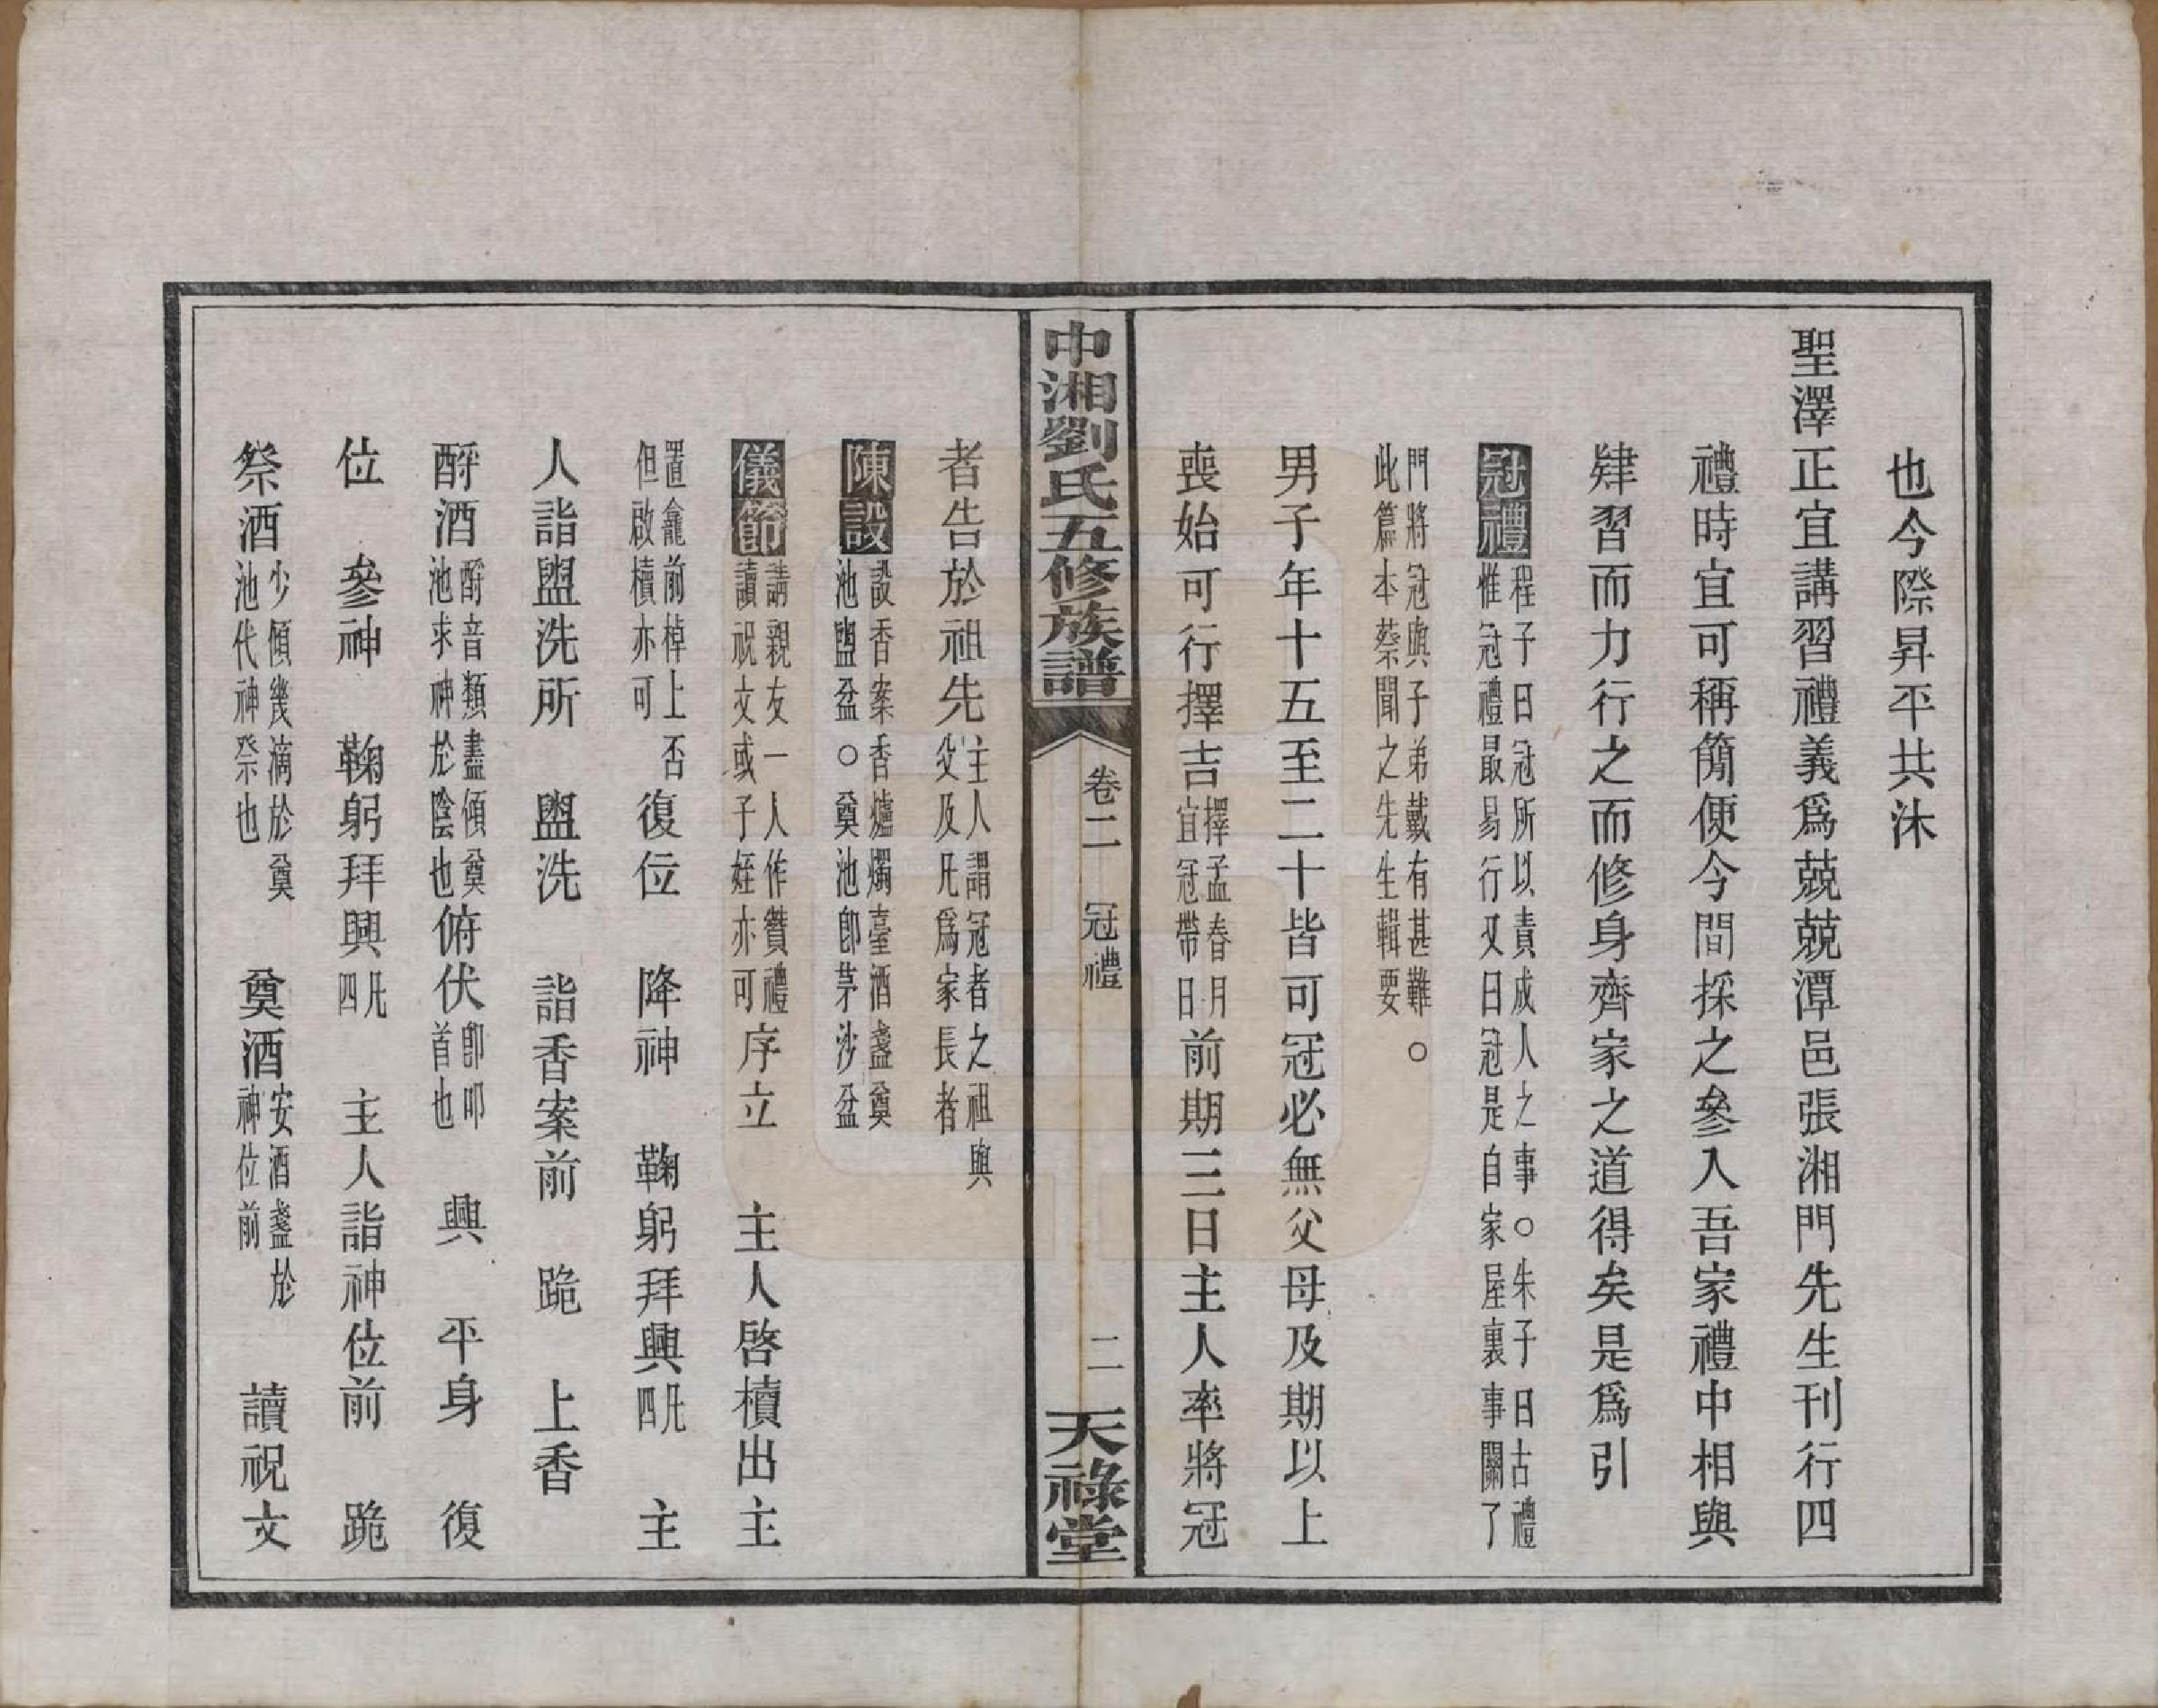 也今際昇平共沐
聖澤正宜講習禮義爲兢兢潭邑張湘門先生刊行四
禮時宜可稱簡便今間採之參入吾家禮中相與
肄習而力行之而修身齊家之道得矣是爲引
冠禮
程子曰冠所以責成人之事○朱子曰古禮
惟冠禮最易行又曰冠是自家屋裏事關了
門將冠與子弟戴有甚難○
此篇本蔡聞之先生輯要
男子年十五至二十皆可冠必無父母及期以上
喪始可行擇吉
擇孟春月
宜冠帶日
前期三日主人率將冠
中湘劉氏五修族譜
卷二　冠禮
二
天祿堂
者告於祖先
主人謂冠者之祖與
父及凡爲家長者
陳設
設香案香爐燭臺酒盞奠
池盥盆○奠池卽茅沙盆
儀節
請親友一人作贊禮
讀祝文或子姪亦可
序立　主人啓櫝出主
置龕前棹上否
但啟櫝亦可
復位　降神　鞠躬拜興
凡
四
主
人詣盥洗所　盥洗　詣香案前　跪　上香
酹酒
酹音類盡傾奠
池求神於陰也
俯伏
卽叩
首也
興　平身　復
位　參神　鞠躬拜興
凡
四
主人詣神位前　跪
祭酒
少傾幾滴於奠
池代神祭也
奠酒
安酒盞於
神位前
讀祝文